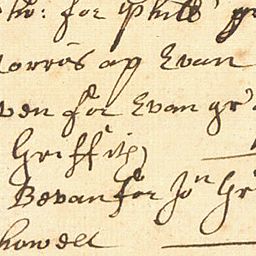 for Phill
morris ap Evan
for Evan gr
Griffith
Bevan for Jon Gr
howell